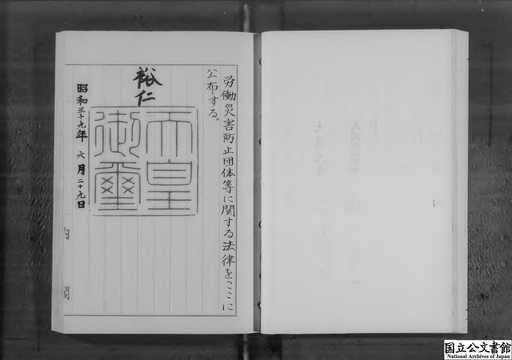 労働災害防止団体等に関する法律をここに
公布する。
裕仁
天皇
御璽
昭和三十九年六月二十九日
内閣
国立公文書館
National Archives of Japan